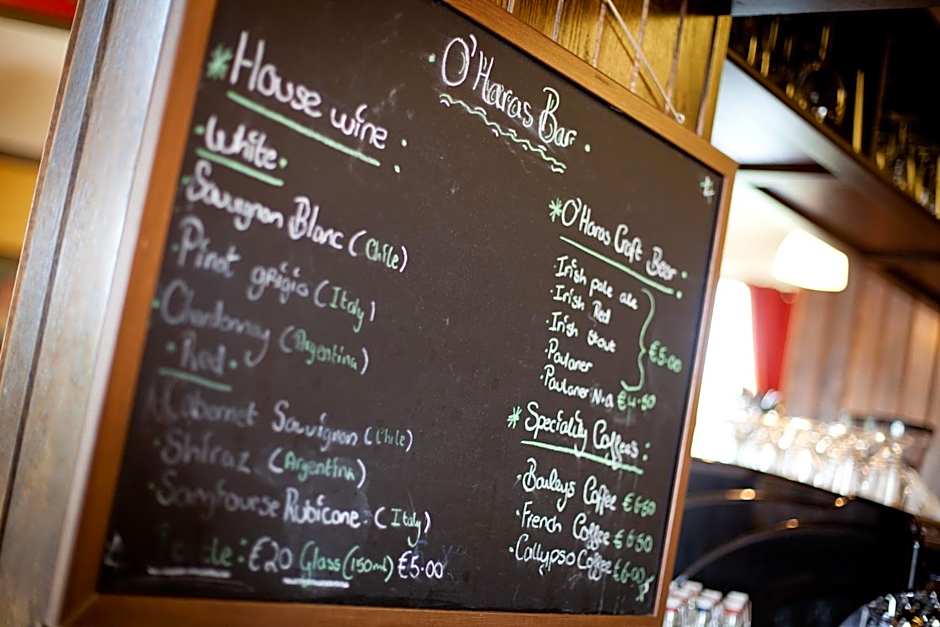 O'Haras Bar.
* House wine:
White.
Sauvignon Blanc (Chile)
Pinot grigio (Italy)
Chardonnay (Argentina)
Red.
Cabernet Sauvignon (Chile)
Shiraz (Argentina)
Rubicone: (Italy)
€20 Glass (150ml) €5.00
* O'Haras Craft Beer.
Irish pale ale
· Irish Red
· Irish Stout
· Paulaner
€5.00
· Paulaner N.a €4.50
* Speciality Coffees:
· Baileys Coffee €6.50
· French Coffee €6.50
· Callypso Coffee €6.00